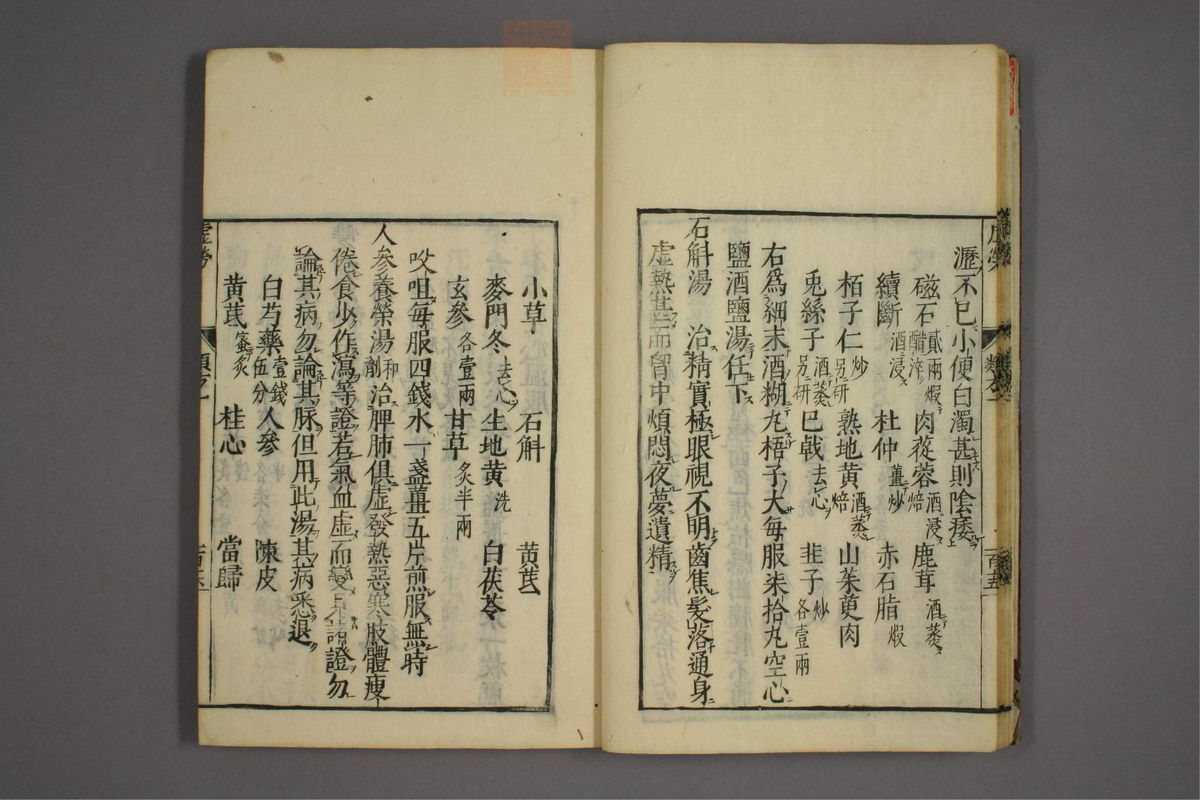 瀝不已小便白濁甚則陰痿
磁石貳兩煆醋淬 肉蓯蓉酒浸焙 鹿茸酒蒸
續斷酒浸 杜仲薑炒 赤石脂煆
栢子仁炒另研 熟地黃酒蒸焙 山茱萸肉
兎絲子酒蒸另研 巴戟去心 韭子炒各壹兩
右爲細末酒糊丸梧子大每服柒拾丸空心
鹽酒鹽湯任下
石斛湯 治精實極眼視不明齒焦髮落通身
虛熱甚而胷中煩悶夜夢遺精
小草 石斛 黄芪
麥門冬去心 生地黄洗 白茯苓
玄參各壹兩 甘草炙半兩
㕮咀每服四錢水一盞薑五片煎服無時
人參養榮湯和劑治脾肺俱虛發熱惡寒肢體瘦
倦食少作瀉等證若氣血虛而變見諸證勿
論其病勿論其脉但用此湯其病悉退
白芍藥壹錢伍分 人參 陳皮
黄芪蜜炙 桂心 當歸